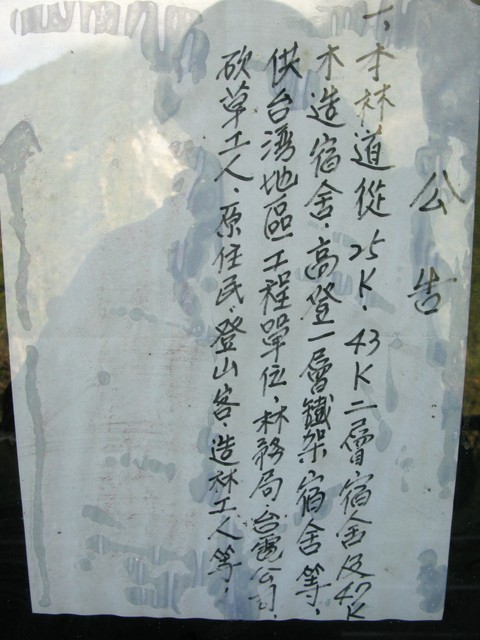 公告
一、本林道從25K、43K二層宿舍及47K
木造宿舍、高登一層鐵架宿舍等、
供台灣地區工程單位、林務局台電公司、
砍草工人、原住民、登山客、造林工人等、